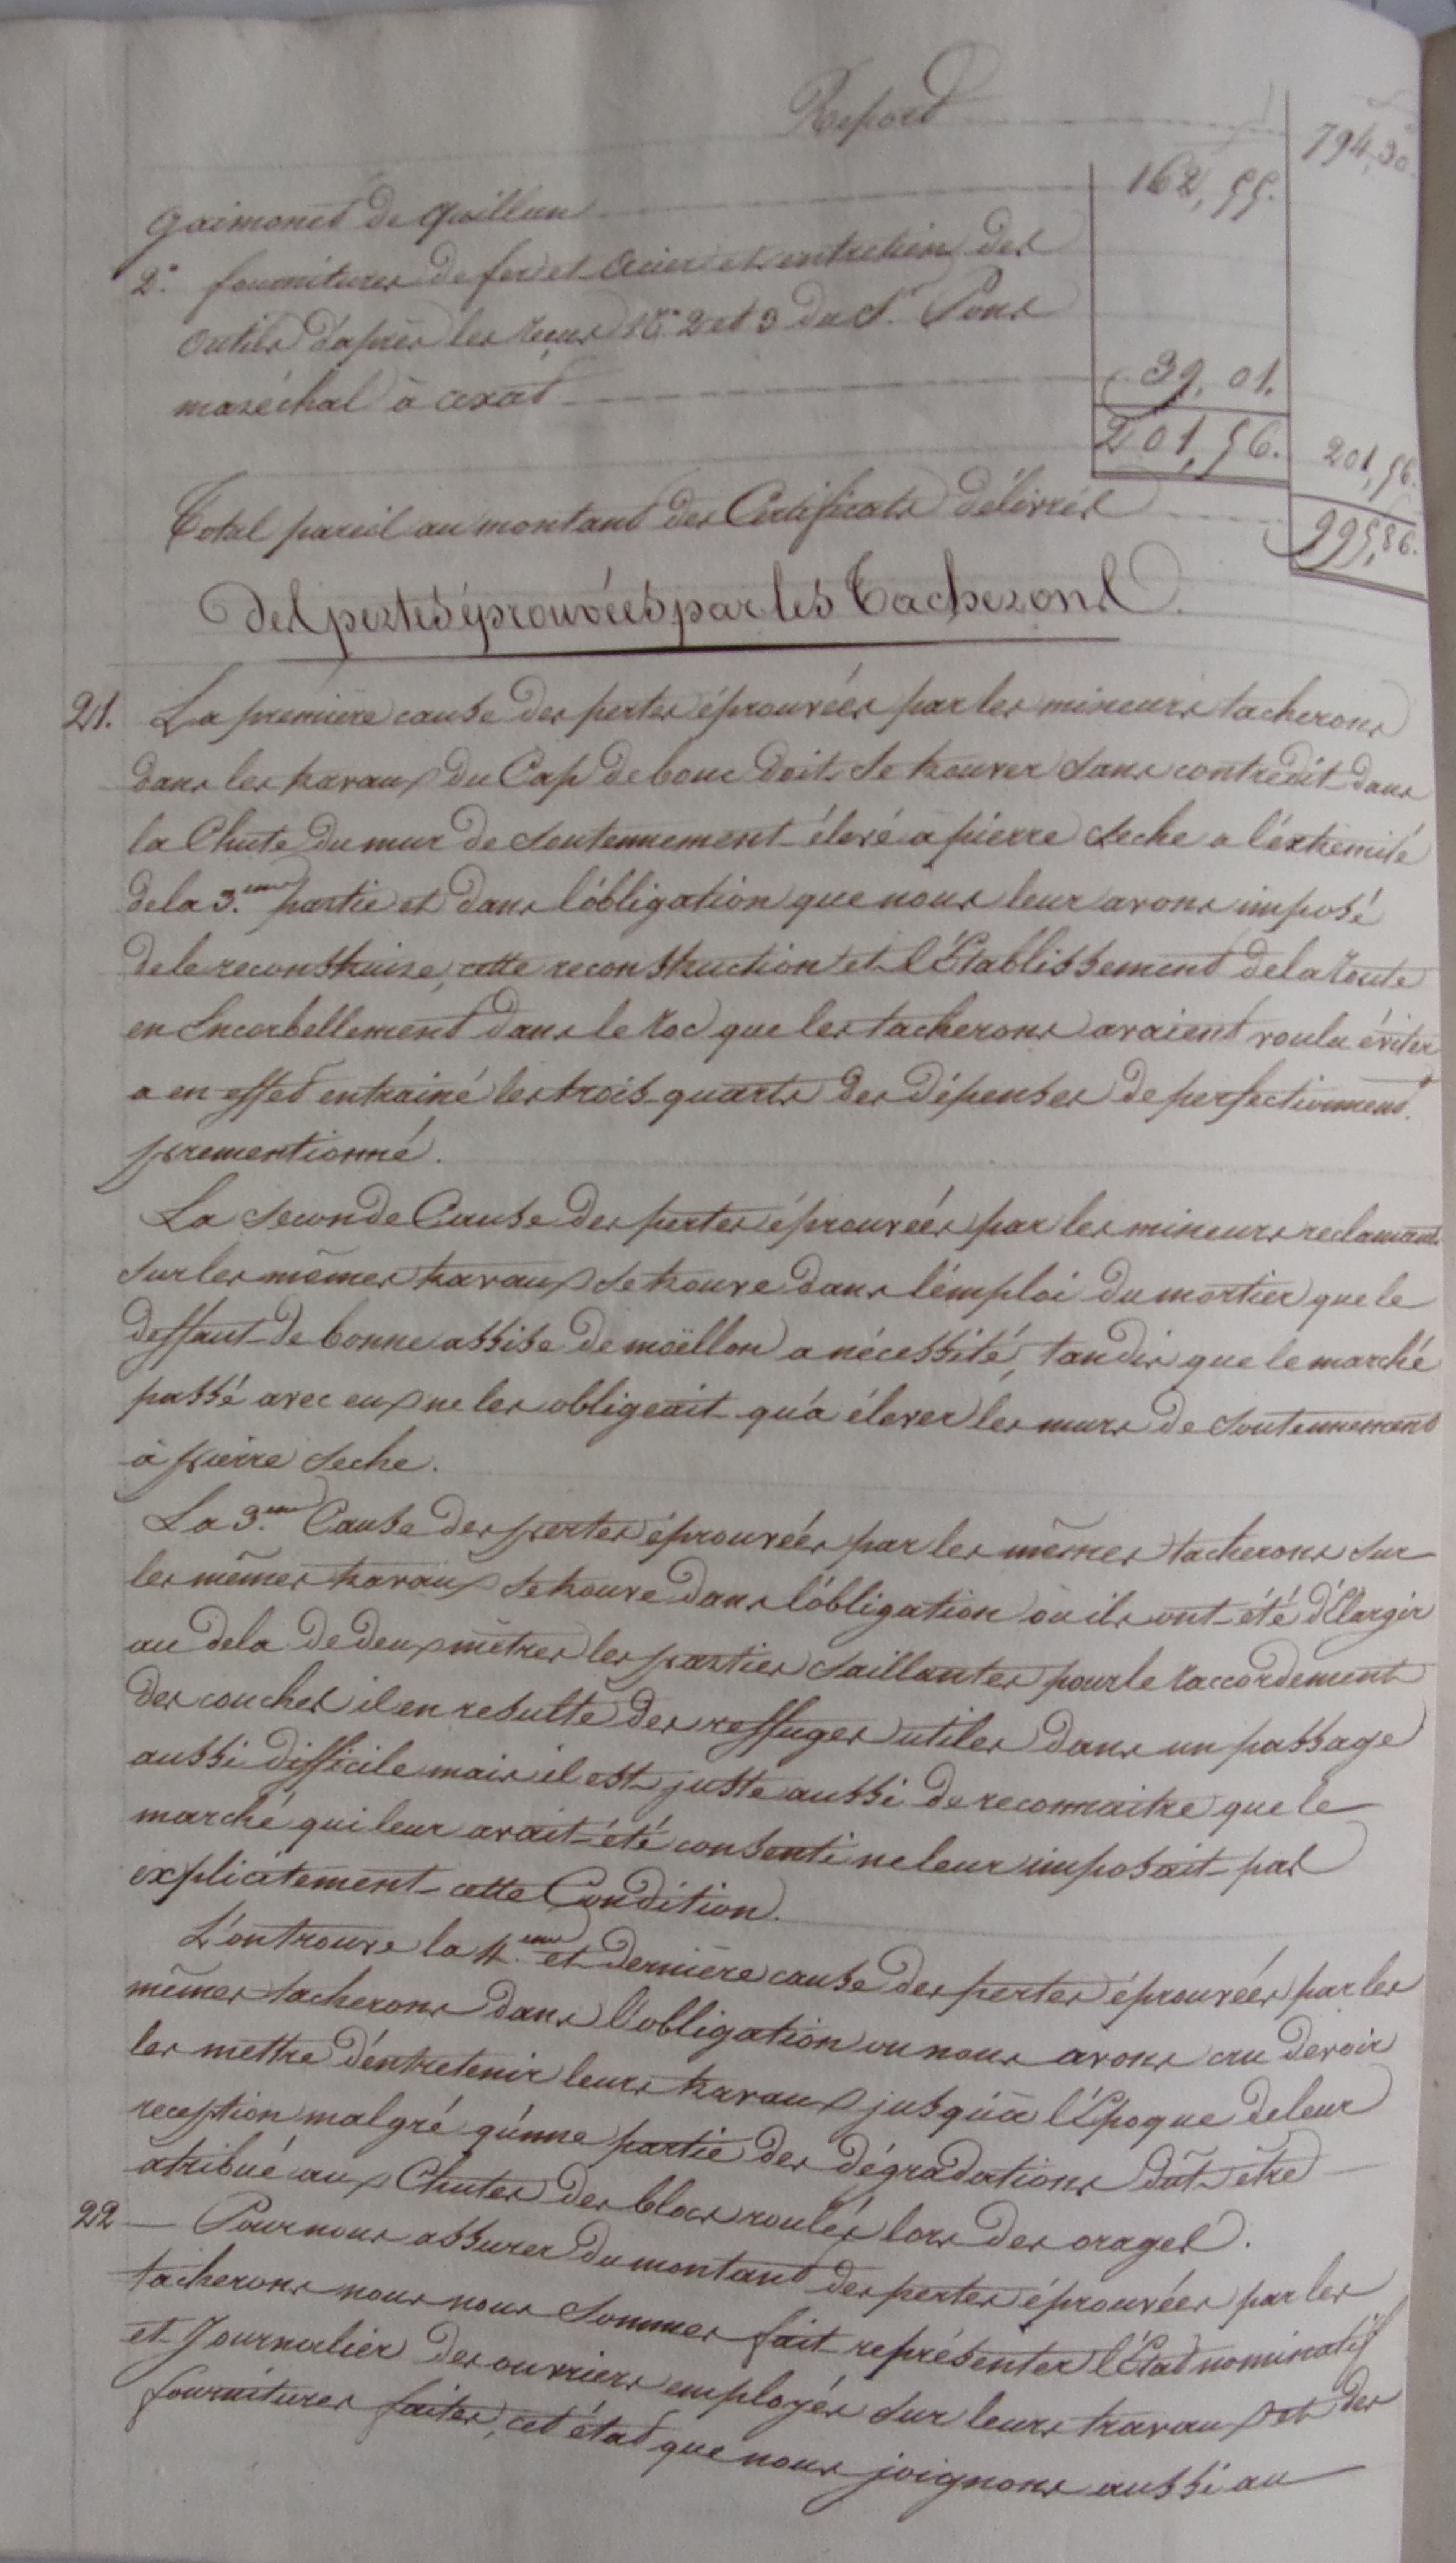 Report 794,30
Gaimonet de Quillan 162,55.
2° fournitures de fer et acier et entretien des
outils d'après les reçus N.os 2 et 3 du S.r Pons
maréchal à axat 39,01.
201,56. 201,56.
Total pareil au montant des Certificats délivrés 995,86.
Des pertes éprouvées par les Tacherons.
21. La première cause des pertes éprouvées par les mineurs tacherons
dans les travaux du Cap de bouc doit se trouver sans contredit dans
la Chute du mur de soutennement élevé a pierre seche a l'extremité
de la 3.eme partie et dans l'obligation que nous leur avons imposé
de le reconstruire, cette reconstruction et l'Établissement de la route
en Encorbellement dans le roc que les tacherons avaient voulu éviter
a en effet entrainé les trois quarts des dépenses de perfectionnement
prementionné.
La seconde Cause des pertes éprouvées par les mineurs reclamants
sur les mêmes travaux se trouve dans l'emploi du mortier que le
deffaut de bonne assise de moëllon a nécessité, tandis que le marché
passé avec eux ne les obligeait qu'à élever les murs de soutennement
à pierre seche.
La 3.eme Cause des pertes éprouvées par les mêmes tacherons sur
les mêmes travaux se trouve dans l'obligation où ils ont été d'Élargir
au dela de deux mètres les parties saillantes pour le raccordement
des couches il en resulte des reffuges utiles dans un passage
aussi difficile mais il est juste aussi de reconnaitre que le
marché qui leur avait été consenti ne leur imposait pas
explicitement cette Condition.
L'on trouve la 4.eme et dernière cause des pertes éprouvées par les
mêmes tacherons dans l'obligation ou nous avons cru devoir
les mettre d'entretenir leurs travaux jusqu'à l'Époque de leur
reception malgré qu'une partie des dégradations dût être
atribué aux Chutes des blocs roulés lors des orages.
22 — Pour nous assurer du montant des pertes éprouvées par les
tacherons nous nous sommes fait représenter l'État nominatif
et Journalier des ouvriers employés sur leurs travaux et des
fournitures faites, cet état que nous joignons aussi au